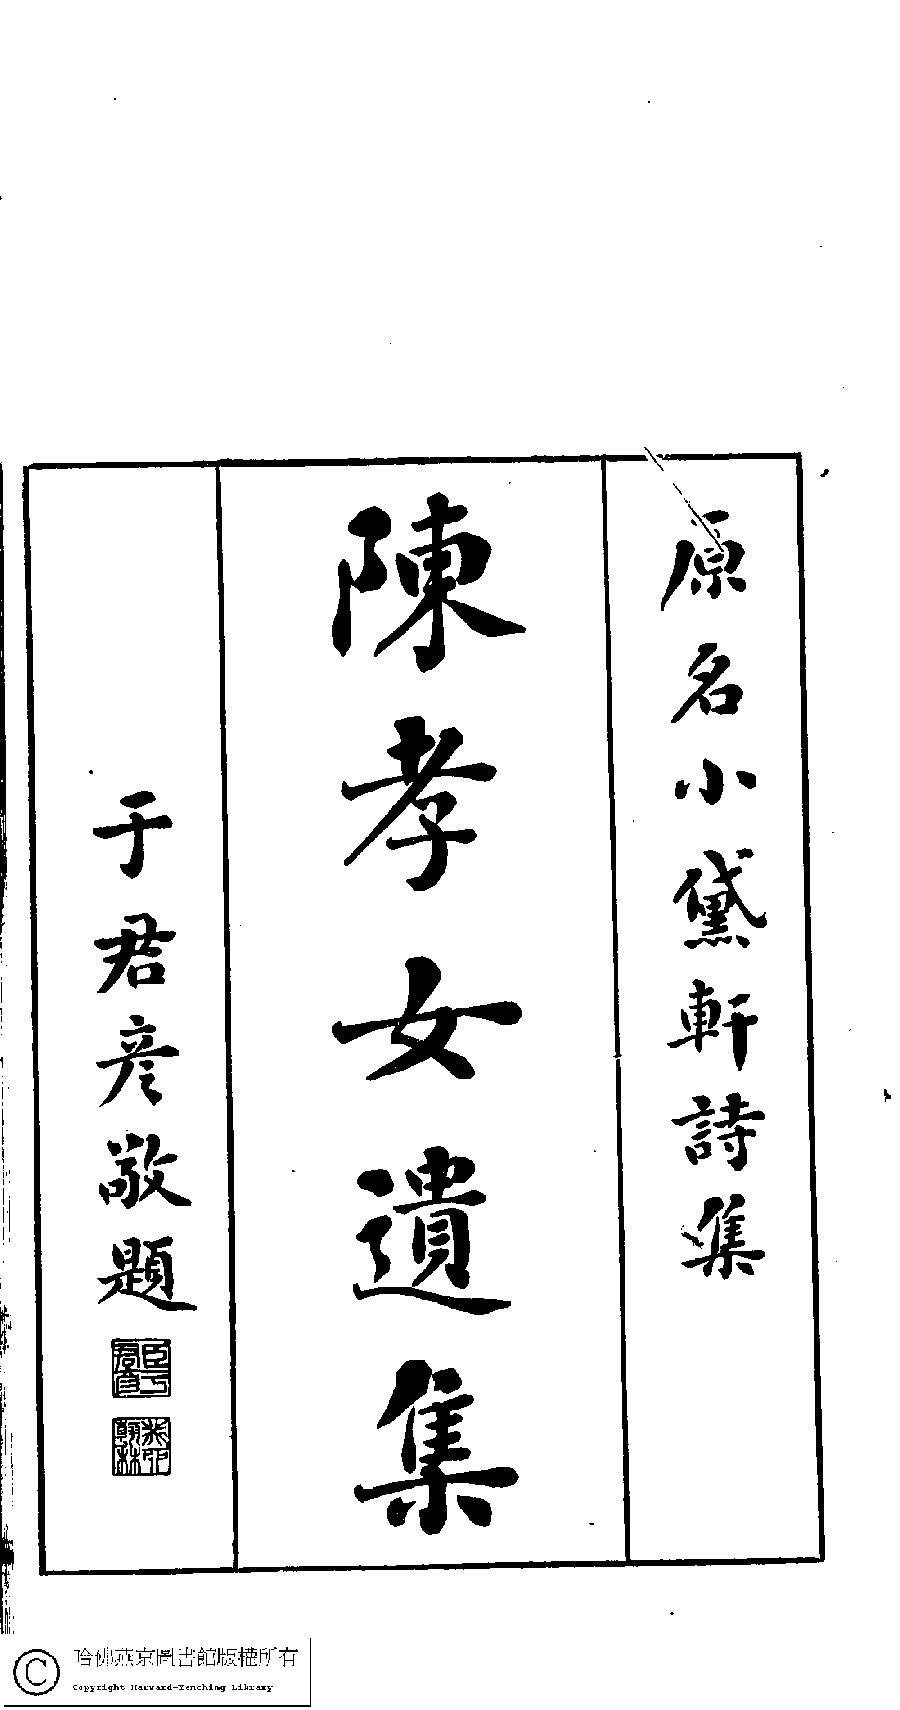 原名小黛軒詩集
陳孝女遺集
于君彥敬題
臣于君彥
癸卯翰林
哈佛燕京圖書館版權所有
Copyright Harvard-Yenching Library